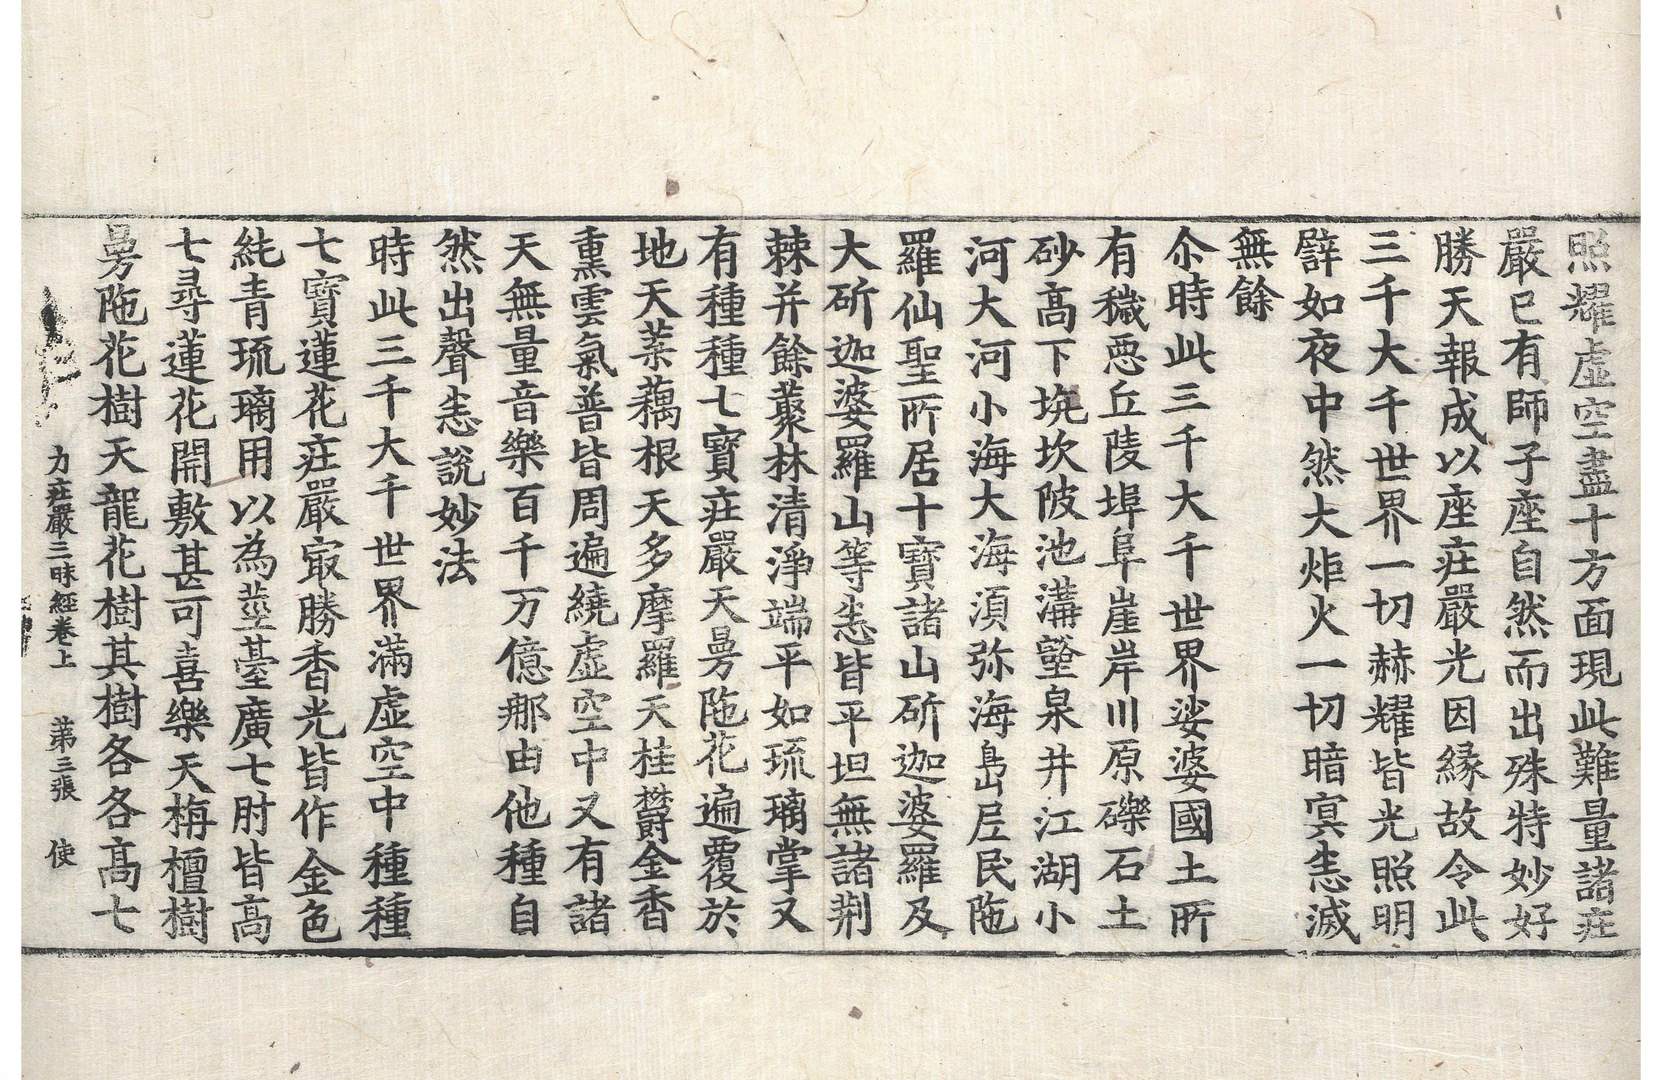 照耀虛空盡十方面現此難量諸莊
嚴已有師子座自然而出殊特妙好
勝天報成以座莊嚴光因緣故令此
三千大千世界一切赫耀皆光照明
譬如夜中然大炬火一切暗冥恚滅
無餘
尒時此三千大千世界娑婆國土所
有穢惡丘陵埠阜崖岸川原礫石土
砂高下坑坎陂池溝壑泉井江湖小
河大河小海大海須弥海島居民陁
羅仙聖所居十寶諸山斫迦婆羅及
大斫迦婆羅山等恚皆平坦無諸荊
棘并餘藂林清淨端平如琉璃掌又
有種種七寶莊嚴天曼陁花遍覆於
地天葉藕根天多摩羅天桂欝金香
熏雲氣普皆周遍繞虛空中又有諸
天無量音樂百千万億那由他種自
然出聲恚說妙法
時此三千大千世界滿虛空中種種
七寶蓮花莊嚴寂勝香光皆作金色
純青琉璃用以為莖臺廣七肘皆高
七尋蓮花開敷甚可喜樂天栴檀樹
曼陁花樹天龍花樹其樹各各高七
力莊嚴三昧經卷上 苐三張 使